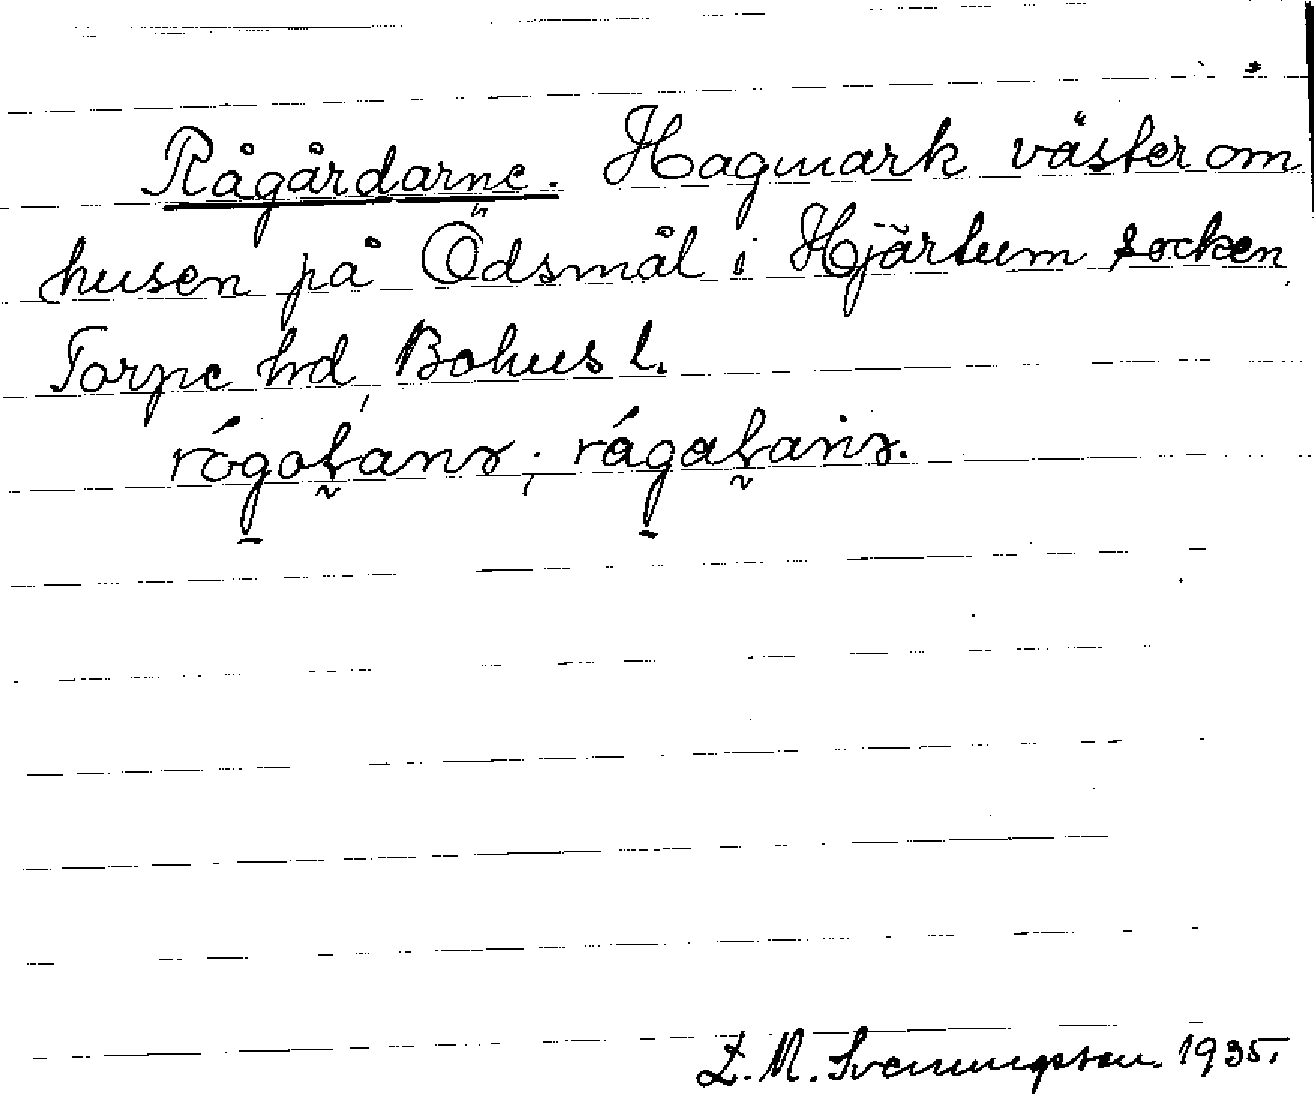 Rågårdarne. Hagmark väster om
husen på Ödsmål i Hjärtum socken
Torpe hd, Bohus l.
L. M. Svenungsson 1935.